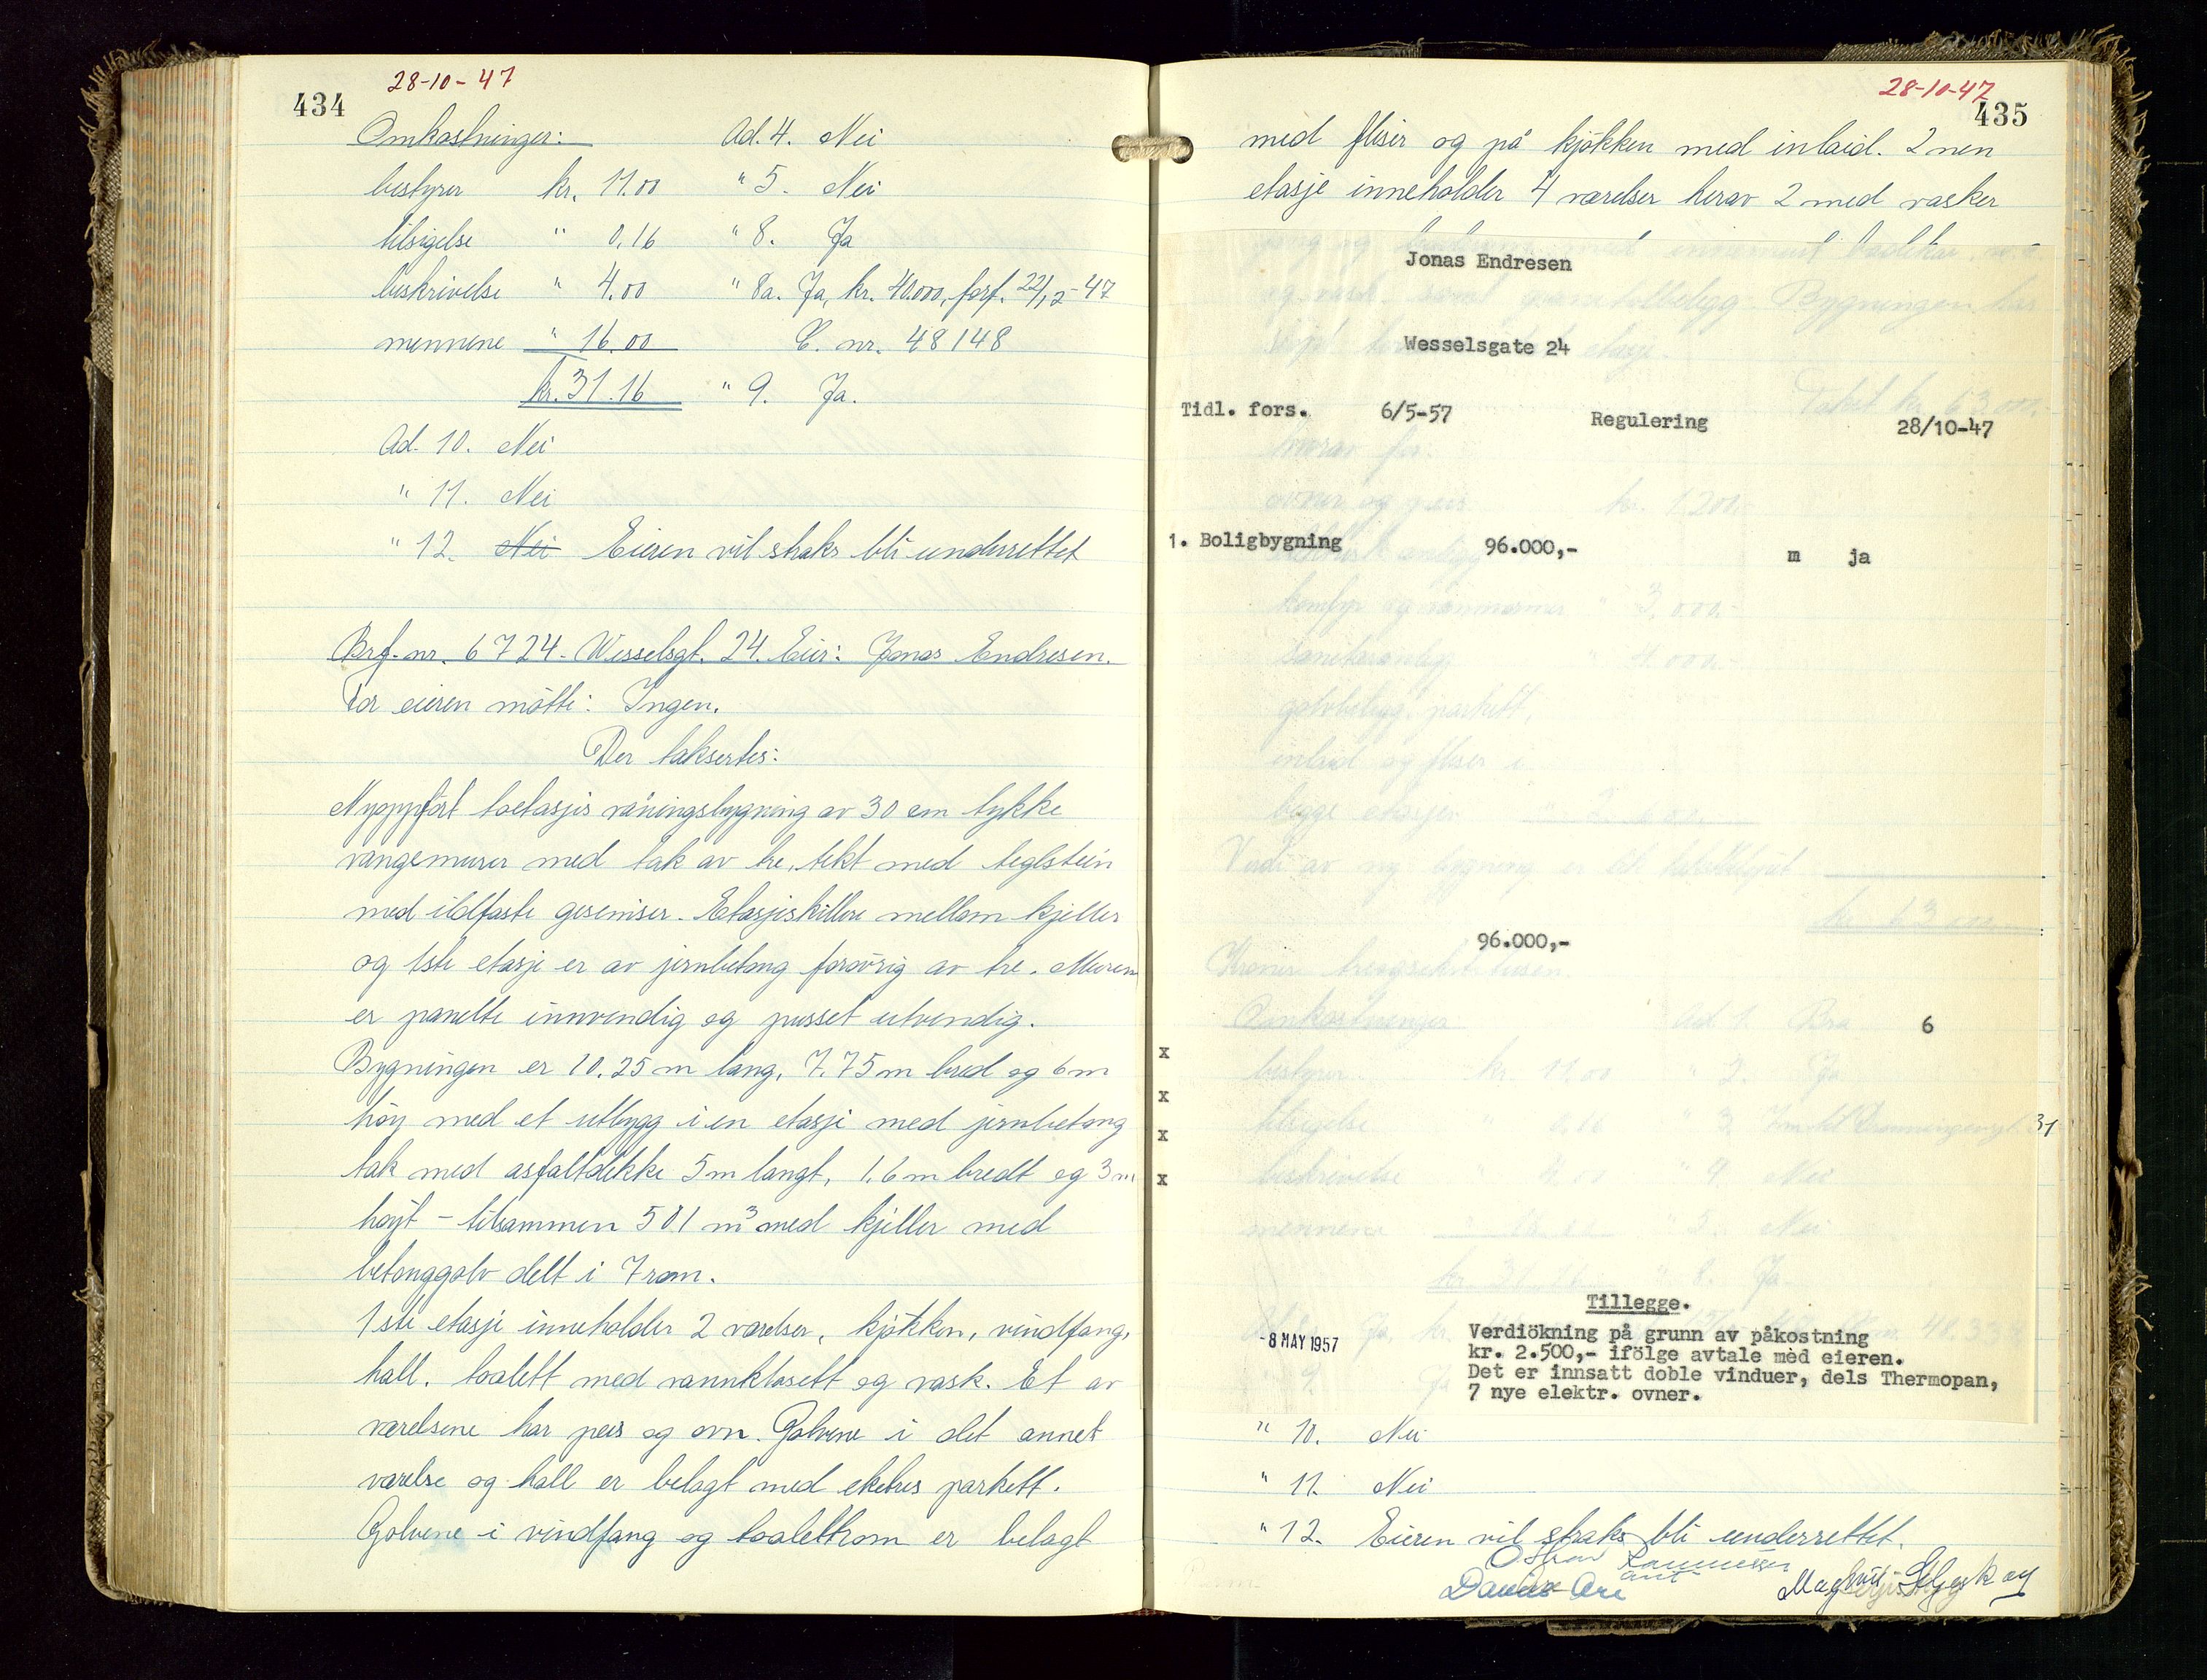 434
28-10-47
Omkostninger: Ad. 4. Nei
bestyrer kr. 11.00 " 5. Nei
tilsigelse " 0.16 " 8. Ja
beskrivelse " 4.00 " 8a. Ja, kr. 40.000,- forf. 22/12-47
mennene " 16.00 C. nr. 48148
kr. 31.16 " 9. Ja.
Ad. 10. Nei
" 11. Nei
" 12. Nei Eieren vil straks bli underrettet
Brf.nr. 6724 - Wesselsgt. 24. Eier: Jonas Endresen.
For eieren møtte: Ingen.
Der taksertes:
Nyoppført toetasjes våningsbygning av 30 cm tykke
vangemurer med tak av tre, tekt med teglstein
med ildfaste gesemser. Etasjeskillere mellom kjeller
og 1ste etasje er av jernbetong forøvrig av tre. Murene
er panelte innvendig og pusset utvendig.
Bygningen er 10.25 m lang, 7.75 m bred og 6 m
høy med et utbygg i en etasje med jernbetong
tak med asfaltdekke 5 m langt, 1.6 m bredt og 3 m
høyt - tilsammen 501 m³ med kjeller med
betonggolv delt i 7 rom.
1ste etasje inneholder 2 værelser, kjøkken, vindfang,
hall, toalett med vannklosett og vask. Et av
værelsene har peis og ovn. Golvene i det annet
værelse og hall er belagt med eketres parkett.
Golvene i vindfang og toalettrom er belagt
28-10-47
435
med fliser og på kjøkken med inlaid. 2nen
etasje inneholder 4 værelser herav 2 med vasker
Jonas Endresen
Wesselsgate 24
Tidl. fors. 6/5-57 Regulering 28/10-47
1. Boligbygning 96.000,- m ja
96.000,-
6
x
x
x
x
31
Tillegge.
-8 MAY 1957
Verdiökning på grunn av påkostning
kr. 2.500,- ifölge avtale med eieren.
Det er innsatt doble vinduer, dels Thermopan,
7 nye elektr. ovner.
" 10. Nei
" 11. Nei
" 12. Eieren vil straks bli underrettet.